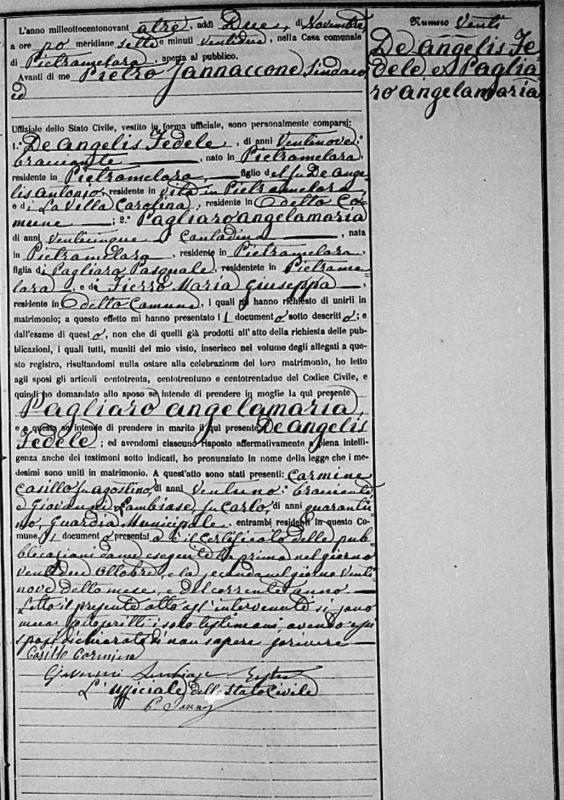 L'anno milleottocentonovantatre, addì Due, di Novembre
a ore po meridiane sette e minuti ventidue, nella Casa comunale
di Pietramelara, aperta al pubblico.
Avanti di me Pietro Jannaccone, Sindaco
ed
Uffiziale dello Stato Civile, vestito in forma ufficiale, sono personalmente comparsi:
1.° De Angelis Fedele, di anni Ventinove
bracciante, nato in Pietramelara
residente in Pietramelara, figlio del fu De Ange-
lis Antonio, residente in vita in Pietramelara,
e di La Villa Carolina, residente in detto Co-
mune; 2.° Pagliaro Angelamaria
di anni Venticinque Contadina, nata
in Pietramelara, residente in Pietramelara
figlia di Pagliaro Pasquale, residente in Pietrame-
lara, e di Fierro Maria Giuseppa,
residente in detto Comune, i quali mi hanno richiesto di unirli in
matrimonio; a questo effetto mi hanno presentato il documento sotto descritto; e
dall'esame di questo, non che di quelli già prodotti all'atto della richiesta delle pub-
blicazioni, i quali tutti, muniti del mio visto, inserisco nel volume degli allegati a que-
sto registro, risultandomi nulla ostare alla celebrazione del loro matrimonio, ho letto
agli sposi gli articoli centotrenta, centotrentuno e centotrentadue del Codice Civile, e
quindi ho domandato allo sposo se intende di prendere in moglie la qui presente
Pagliaro Angelamaria,
e a questa se intende di prendere in marito il qui presente De Angelis
Fedele; ed avendomi ciascuno risposto affermativamente a piena intelli-
genza anche dei testimoni sotto indicati, ho pronunziato in nome della legge che i me-
desimi sono uniti in matrimonio. A quest'atto sono stati presenti: Carmine
Casillo fu Agostino, di anni Ventuno bracciante,
e Giovanni Lombiase fu Carlo, di anni quarantu-
no, Guardia Municipale, entrambi residenti in questo Co-
mune. Il documento presentato è il certificato delle pub-
blicazioni da me eseguite la prima nel giorno
ventidue Ottobre, e la seconda nel giorno Venti
nove detto mese, e del corrente anno.
Letto il presente atto agl'intervenuti si sono
meco sottoscritti i soli testimoni avendo gli
sposi dichiarato di non sapere scrivere
Casillo Carmine
Giovanni Lombiase
L'ufficiale dello Stato Civile
P. Jann
Numero Venti
De Angelis Fe-
dele e Paglia-
ro Angelamaria